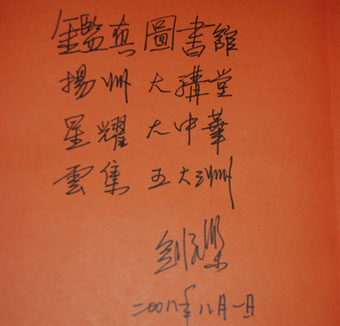 鑑真圖書館
揚州大講堂
星耀大中華
雲集五大洲
二00八年八月一日